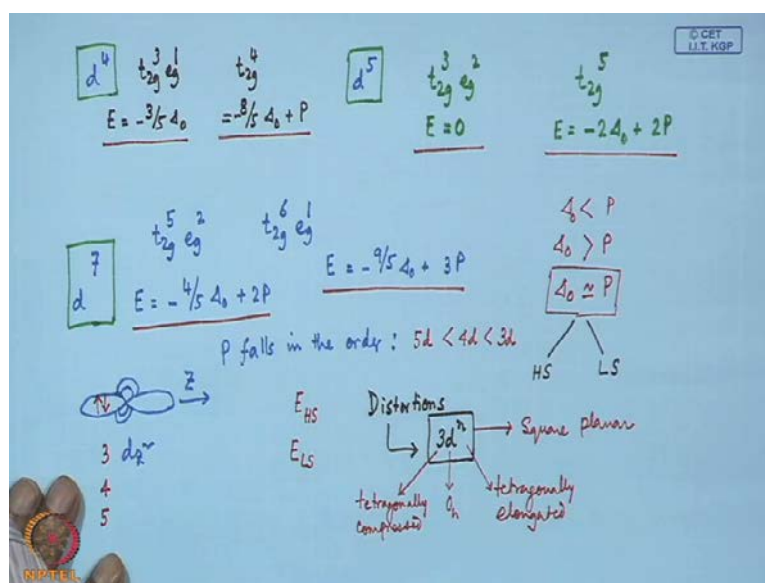 © CET
I.I.T. KGP
d⁴ t₂g³ eg¹ t₂g⁴
E = -3/5 Δ₀ = -8/5 Δ₀ + P
d⁵ t₂g³ eg² t₂g⁵
E = 0 E = -2Δ₀ + 2P
d⁷ t₂g⁵ eg² t₂g⁶ eg¹
E = -4/5 Δ₀ + 2P E = -9/5 Δ₀ + 3P
Δ₀ < P
Δ₀ > P
Δ₀ ≃ P
HS LS
P falls in the order : 5d < 4d < 3d
Z
3 dz²
4
5
E HS
E LS
Distortions
3dⁿ
Square planar
tetragonally
compressed
Oh
tetragonally
elongated
NPTEL